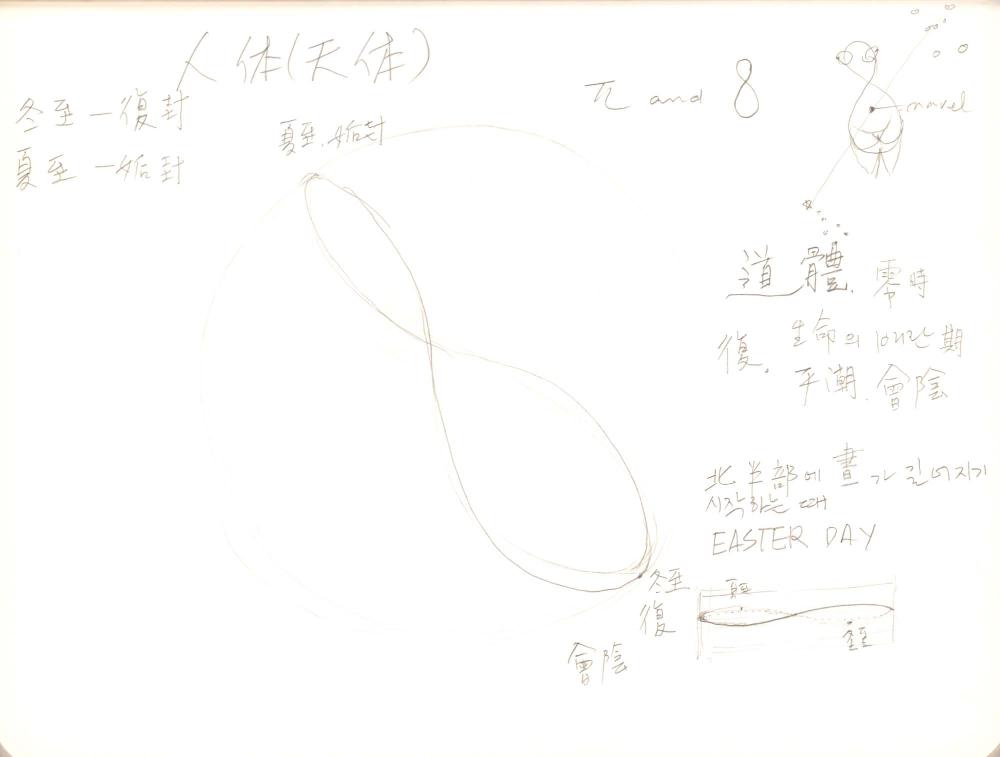 人体(天体)
冬至 — 復封
夏至 — 姤封
夏至. 姤封
π and 8
navel
道體. 零時
復. 生命의 期
平潮. 會陰
北半部에 晝가 길어지기
시작하는 때
EASTER DAY
冬至
復
會陰
夏至
冬至